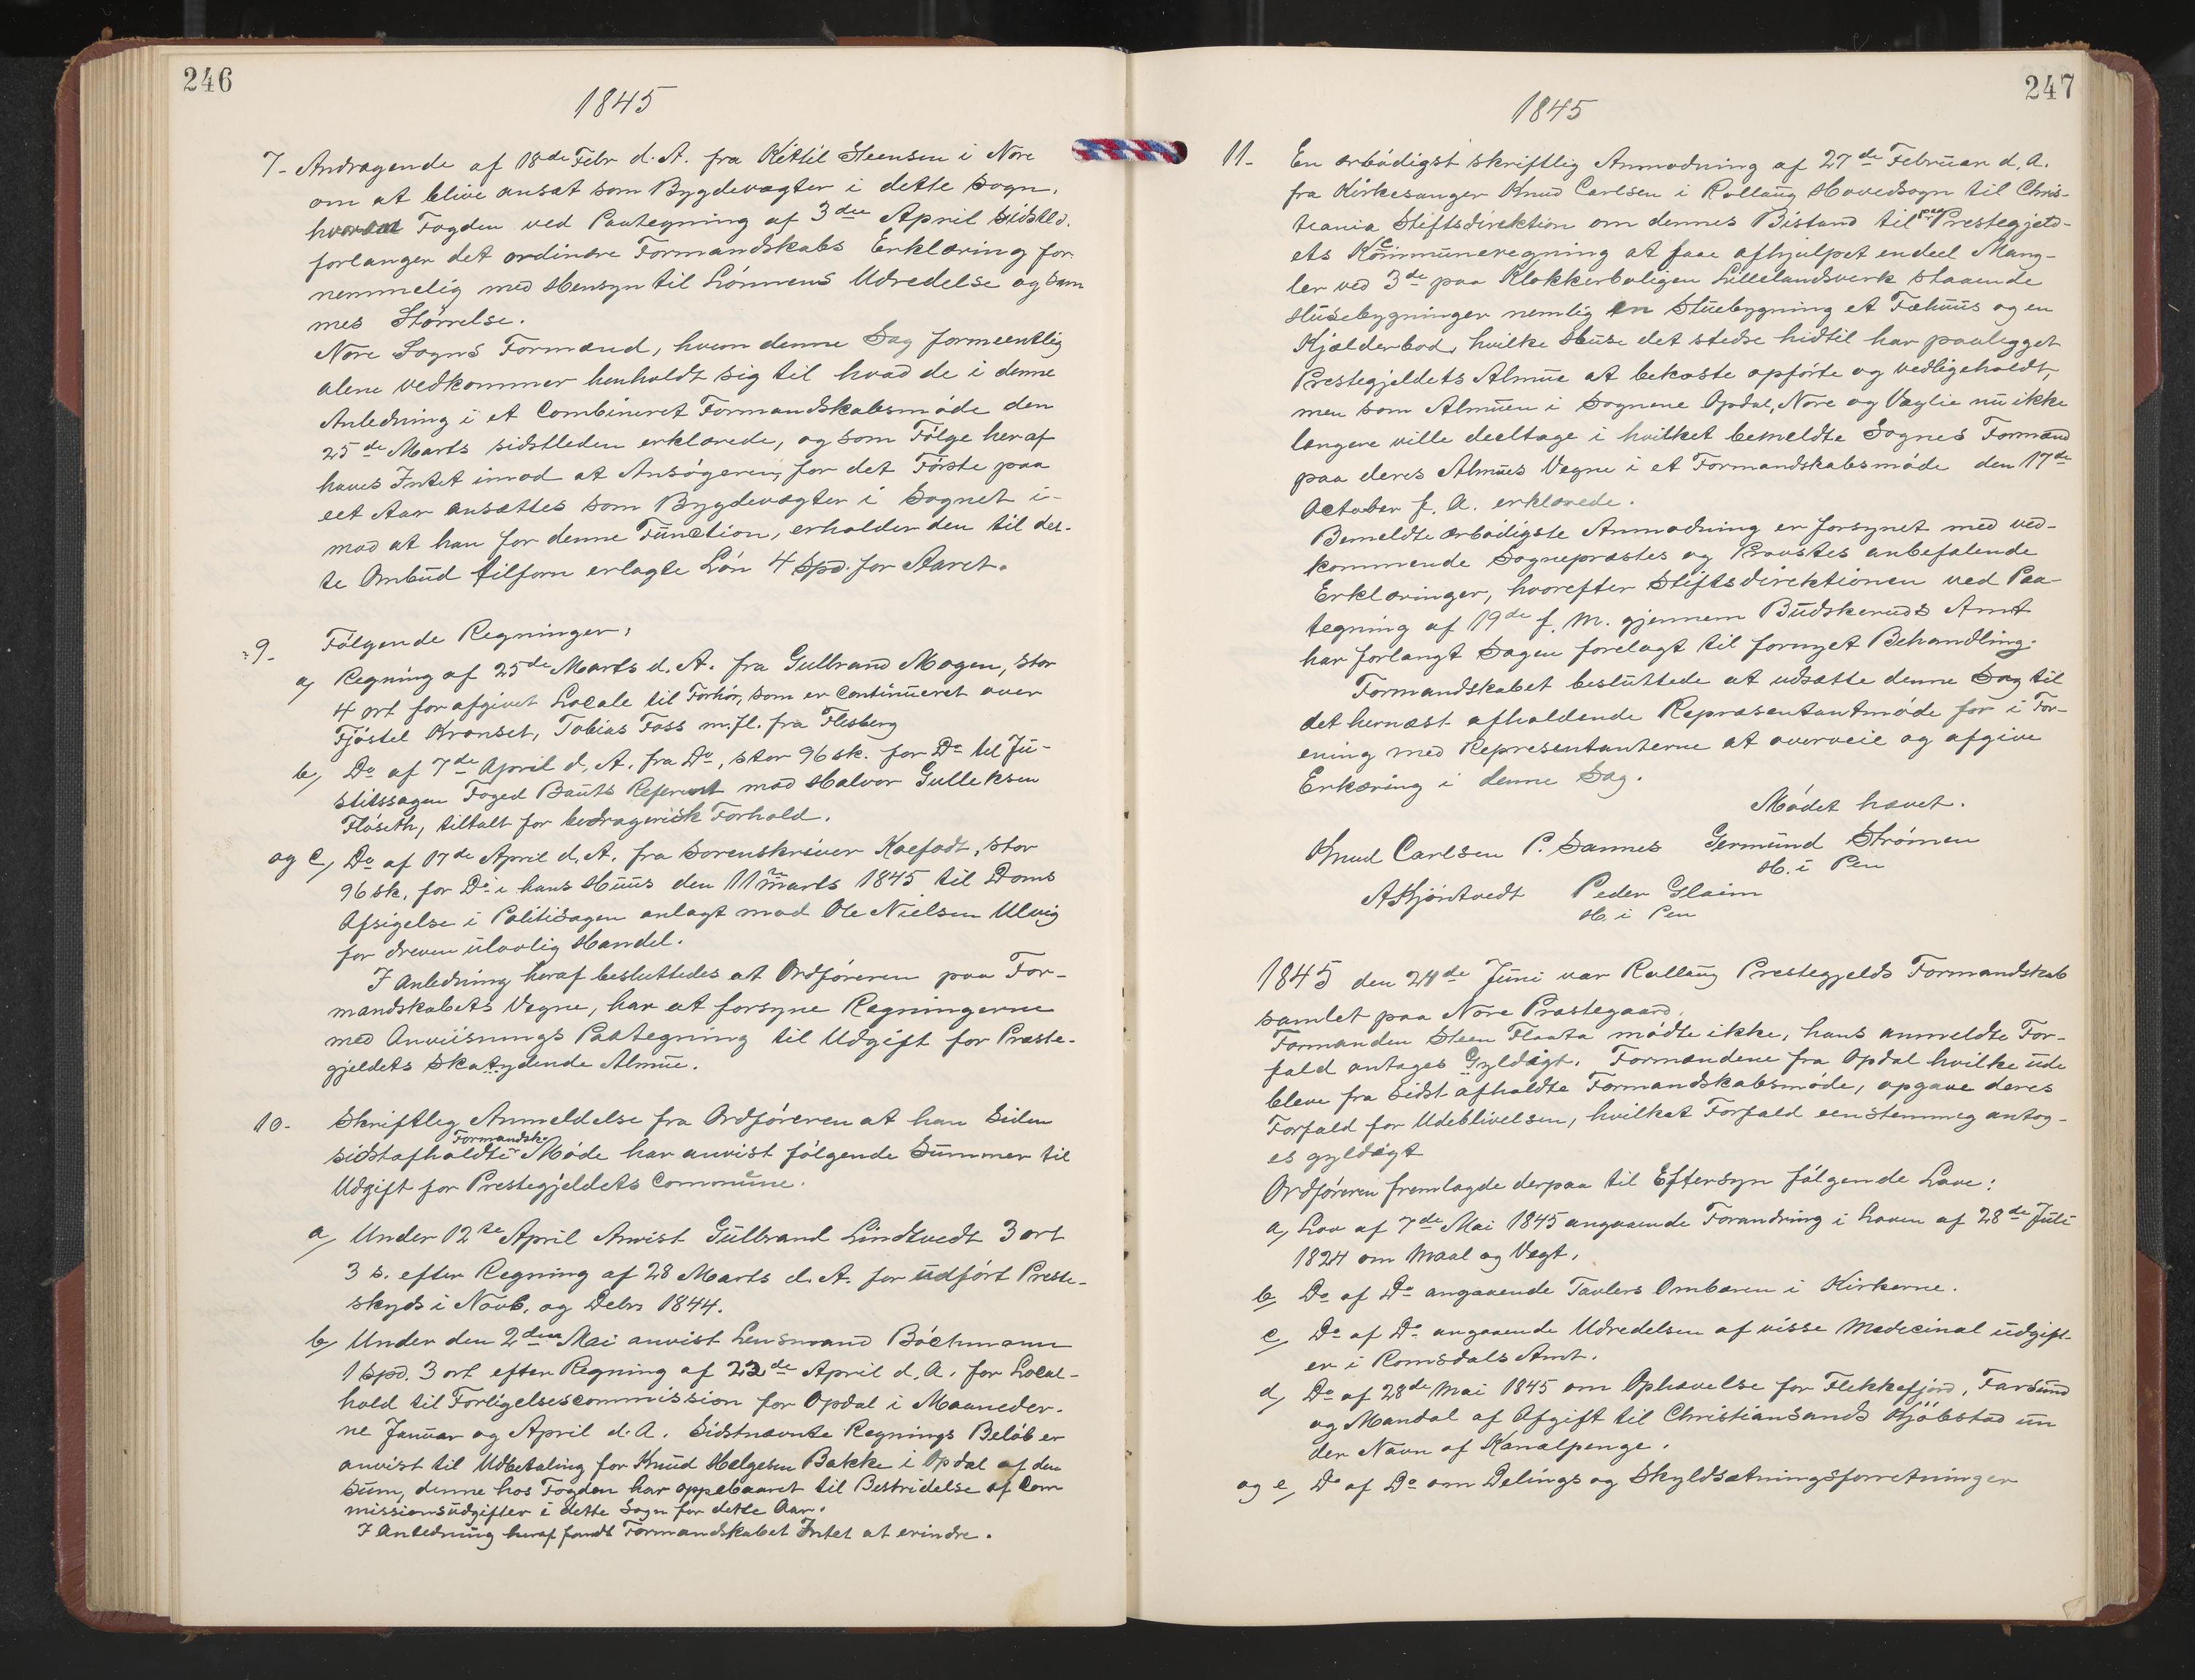 246
1845
7- Andragende af 18de Febr d. A. fra Kittil Steensen i Nore
om at blive ansat som Bygdevægter i dette Sogn,
hvorom Fogden ved Paategning af 3die April sidstl.
forlanger det ordinære Formandskabs Erklæring for-
nemmelig med Hensyn til Lønnens Udredelse og sam
mes Størrelse.
Nore Sogns Formænd, hvem denne Sag formeentlig
alene vedkommer henholdt sig til hvad de i denne
Anledning i et Combineret Formandskabsmøde den
25de Marts sidstleden erklærede, og som Følge heraf
haves Intet imod at Ansøgeren, for det Første paa
eet Aar ansættes som Bygdevægter i Sognet i-
mod at han for denne Function, erholder den til det-
te Ombud tilforn erlagte Løn 4 Spd. for Aaret.
9- Følgende Regninger:
a, Regning af 25de Marts d. A. fra Gulbrand Mogen, stor
4 ort for afgivet Locale til Forhør, som er Continueret over
Fjøstel Kronset, Tobias Foss m. fl. fra Flesberg
b, Do af 7de April d. A. fra Do, stor 96 sk. for Do til Ju-
stitssagen Foged Bauts Reprent mod Halvor Gulleksen
Flåseth, tiltalt for bedragerisk Forhold.
og c, Do af 17de April d. A. fra Sorenskriver Koefodt, stor
96 sk. for Do i hans Huus den 11te Marts 1845 til Doms
Afsigelse i Politisagen anlagt mod Ole Nielsen Ulvig
for dreven ulovlig Handel.
I Anledning heraf besluttedes at Ordføreren paa For-
mandskabets Vegne, har at forsyne Regningerne
med Anviisnings Paategning til Udgift for Præste-
gjeldets skatydende Almue.
10- Skriftlig Anmeldelse fra Ordføreren at han siden
sidstafholdte Formandsk. Møde har anvist følgende Summer til
Udgift for Prestegjeldets Commune.
a, Under 12te April Anvist Gulbrand Lindtvedt 3 ort
3 s. efter Regning af 28 Marts d. A. for udført Preste-
skyds i Novb. og Debr 1844.
b, Under den 2den Mai anvist Lensmand Bóchmann
1 Spd. 3 ort efter Regning af 22de April d. A. for Local-
hold til Forligelsescommission for Opdal i Maaneder-
ne Januar og April d. A. Sidstnævnte Regnings Beløb er
anvist til Udbetaling for Knud Helgesen Bakke i Opdal af den
Sum, denne hos Fogden har oppebaaret til Bestridelse af Com
missionsudgifter i dette Sogn for dette Aar.
I Anledning heraf fandt Formandskabet Intet at erindre.
247
1845
11- En ærbødigst skriftlig Anmodning af 27de Februar d. A.
fra Kirkesanger Knud Carlsen i Rollaug Hovedsogn til Chris-
tiania Stiftsdirektion om dennes Bistand til paa Prestegjeld-
ets Kommuneregning at faae afhjulpet endeel Mang-
ler ved 3de paa Klokkerboligen Lillelandsverk staaende
Husebygninger nemlig en Stuebygning et Fæhuus og en
Kjælderbod, hvilke Huse det stedse hidtil har paalegget
Prestegjeldets Almue at bekoste opførte og vedligeholdt,
men som Almuen i Sognene Opdal, Nore og Væglie nu ikke
længere ville deeltage i hvilket bemeldte Sognes Formænd
paa deres Almues Vegne i et Formandskabsmøde den 17de
October f. A. erklærede.
Bemeldte ærbødigste Anmodning er forsynet med ved-
kommende Sognepræstes og Provstes anbefalende
Erklæringer, hvorefter Stiftsdirektionen ved Paa-
tegning af 19de f. M. gjennem Budskeruds Amt
har forlangt Sagen forelagt til fornyet Behandling.
Formandskabet besluttede at udsætte denne Sag til
det hernæst afholdende Repræsentantmøde for i For-
ening med Representanterne at overveie og afgive
Erkæring i denne Sag.
Mødet hævet.
Knud Carlsen P. Sannes Germund Strømen
H. i Pen
A Hjørtvedt Peder Glaim
H. i Pen
1845 den 24de Juni var Rollaug Prestegjelds Formandskab
samlet paa Nore Præstegaard.
Formanden Steen Flaata mødte ikke, hans anmeldte For-
fald antages Gyldigt. Formændene fra Opdal hvilke ude
bleve fra sidst afholdte Formandskabsmøde, opgave deres
Forfald for Udeblivelsen, hvilket Forfald eenstemmig antog-
es gyldigt
Ordføreren fremlagde derpaa til Eftersyn følgende Love:
a, Lov af 7de Mai 1845 angaaende Forandring i Loven af 28de Juli
1824 om Maal og Vegt.
b, Do af Do angaaende Tavlers Ombæren i Kirkerne.
c, Do af Do angaaende Udredelsen af visse Medecinal udgift-
er i Romsdals Amt.
d, Do af 28de Mai 1845 om Ophævelse for Flekkefjord, Farsund
og Mandal af Afgift til Christiansands Kjøbstad un
der Navn af Kanalpenge.
og e, Do af Do om Delings og Skyldsætningsforretninger